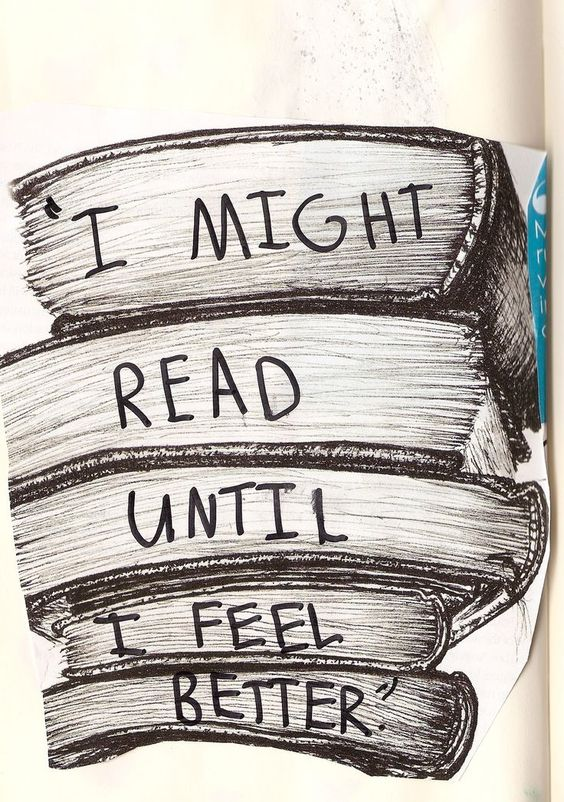 "I MIGHT
READ
UNTIL
I FEEL
BETTER."